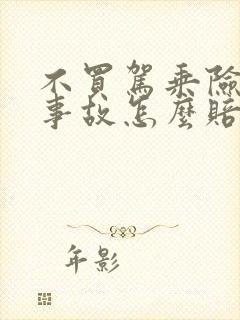 不買駕乘險
事故怎麼賠
年影